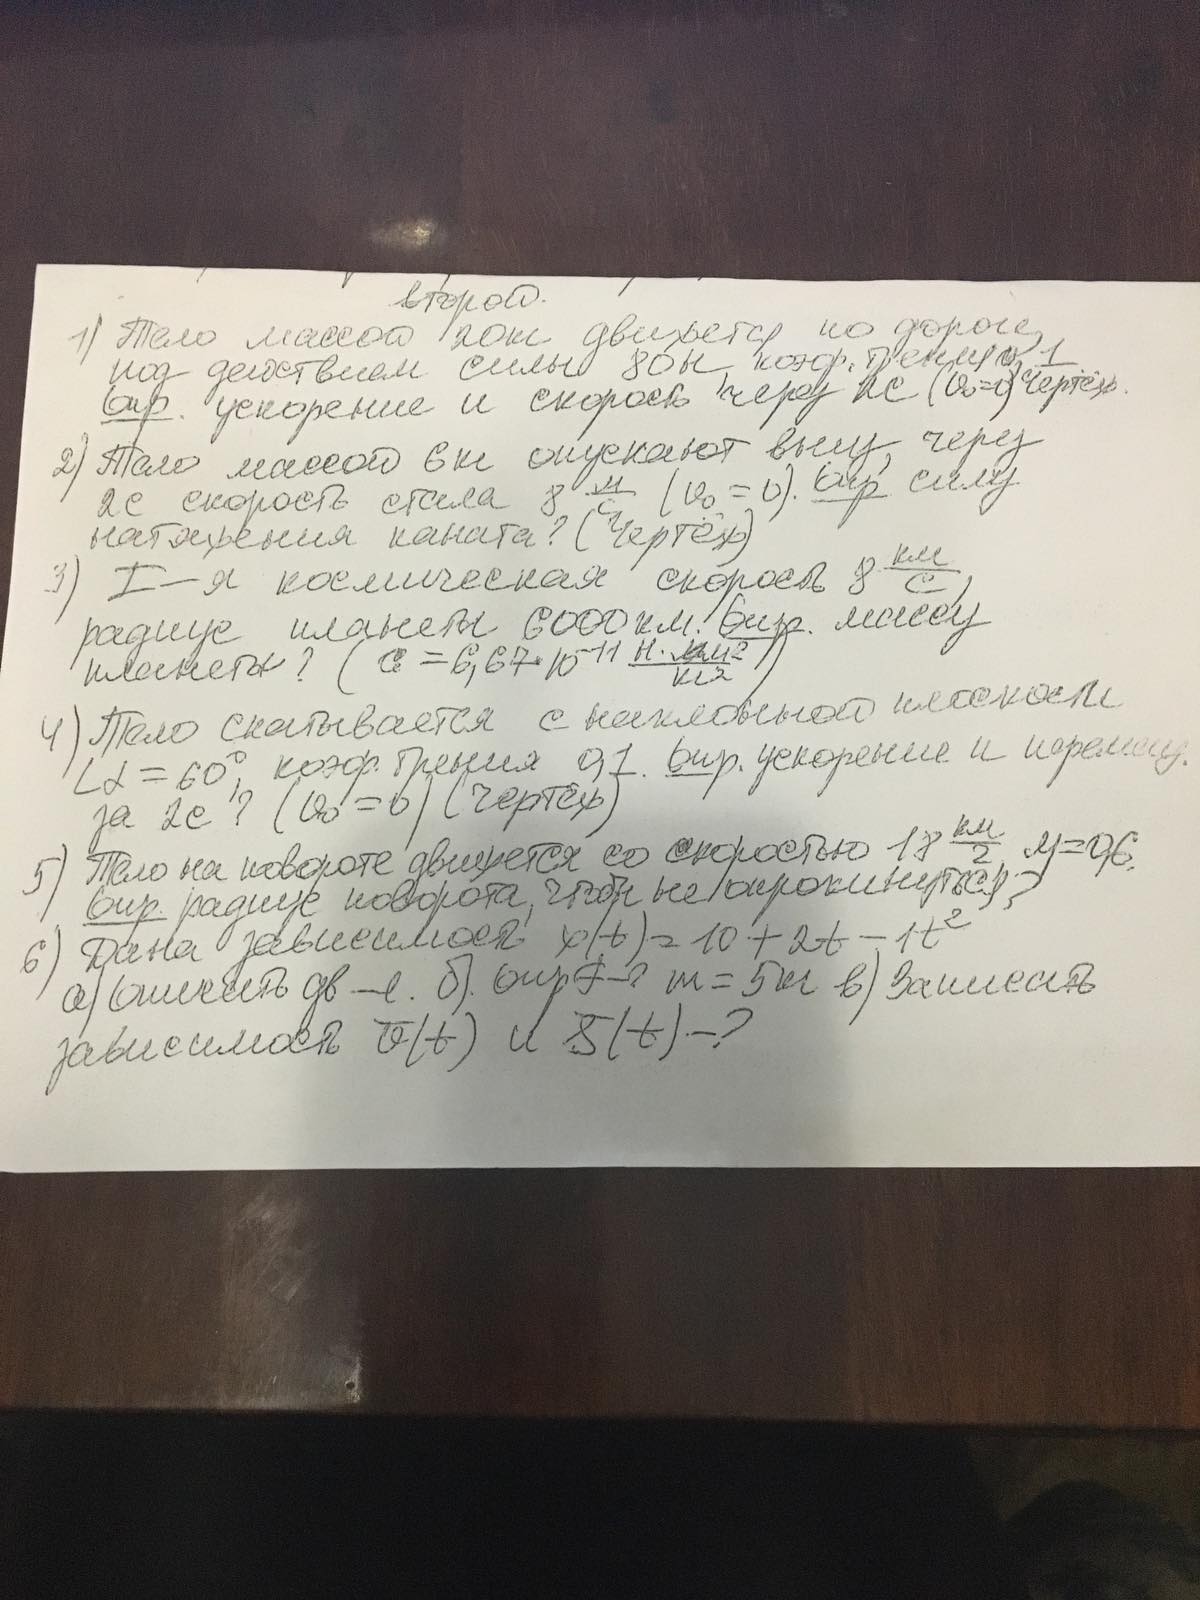 второй.
1) Тело массой 20кг движется по дороге,
под действием силы 80Н, коэф. трения 0,1
Опр. ускорение и скорость через 2с (V₀=0) Чертёж.
2) Тело массой 6кг опускают вниз, через
2с скорость стала 8 м/с (V₀ = 0). Опр силу
натяжения каната? (Чертёж)
3) I–я космическая скорость 8 км/с,
радиус планеты 6000км. Опр. массу
планеты? (G = 6,67·10⁻¹¹ Н·м²/кг²)
4) Тело скатывается с наклонной плоскости
∠α = 60°, коэф. трения 0,1. Опр. ускорение и перемещ.
за 2с? (V₀ = 0) (Чертёж)
5) Тело на повороте движется со скоростью 18 км/г μ=0,6.
Опр. радиус поворота, чтоб не опрокинуться?
6) Дана зависимость x(t) = 10 + 2t – 1t²
а) Описать дв–е. б). Опр F–? m = 5кг в) Записать
зависимость V(t) и S(t) –?